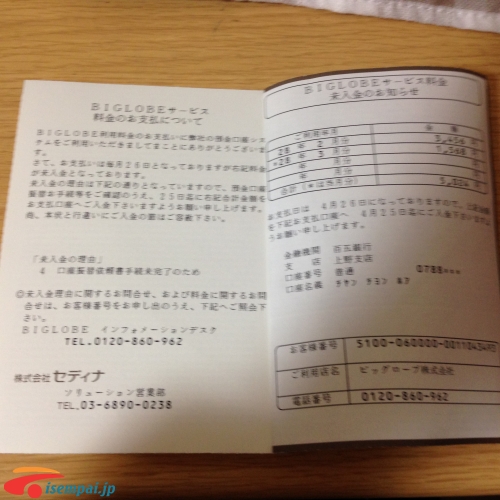 BIGLOBEサービス
料金のお支払について
BIGLOBE利用料金のお支払いに弊社の預金口座シス
テムをご利用いただきましてまことにありがとうございま
す。
さて、お支払いは毎月26日となっておりますが右記料金
が未入金となっております。
未入金の理由は下記の通りとなっていますので、預金口座
振替お手続等をご確認のうえ、25日迄に右記合計金額を
お支払口座へご入金下さいますようお願い申し上げます。
尚、本状と行違いにご入金の節はご容赦下さい。
「未入金の理由」
4 口座振替依頼書手続未完了のため
◎未入金理由に関するお問合せ、および料金に関するお問
合せは、お客様番号をお申し出のうえ、下記へご照会下
さい。
BIGLOBE インフォメーションデスク
TEL.0120-860-962
株式会社 セディナ
ソリューション営業部
TEL.03-6890-0238
BIGLOBEサービス料金
未入金のお知らせ
ご利用年月 金額
28年 2月分 3,456円
*28年 3月分 1,568円
年 月分 円
年 月分 円
合計(*は当月分) 5,024円
お支払日は 4月26日になっておりますので、上記金額
を下記お支払口座へ 4月25日迄にご入金下さいますよ
うお願い申し上げます。
金融機関 百五銀行
支店 上野支店
口座番号 普通 0788***
口座名義
お客様番号 5100-060000-0011043495
ご利用店名 ビッグローブ株式会社
電話番号 0120-860-962
isempai.jp